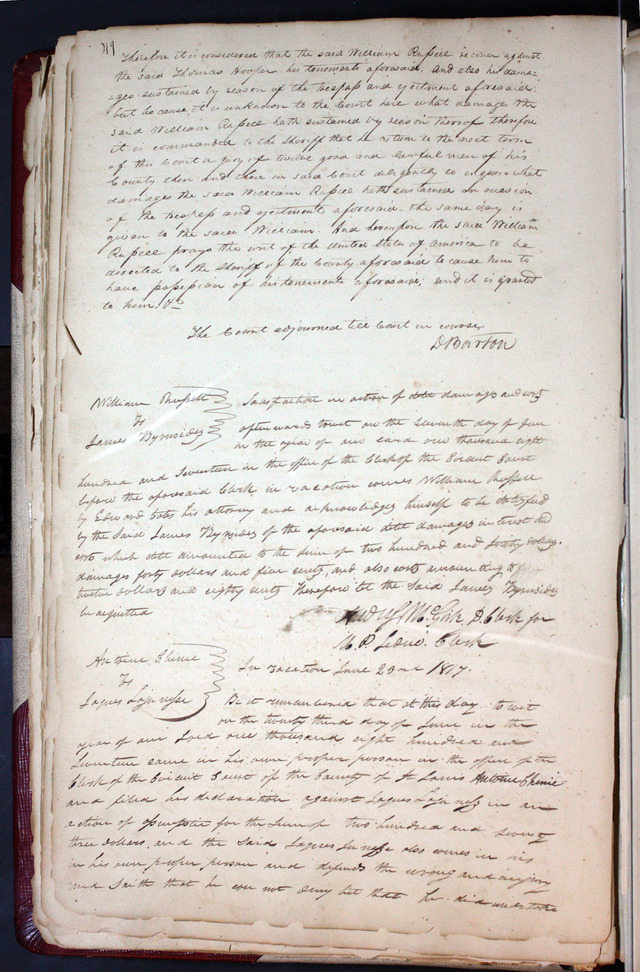 Therefore it is considered that the said William Russell recover against
the said Thomas Hooper his tenements aforesaid. And also his dama=
=ges sustained by reason of the trespass and ejectment aforesaid.
but because it is unknown to the Court here what damage the
said William Russell hath sustained by reason thereof therefore
it is commanded to the Sheriff that he return to the next term
of this Court a jury of twelve good and lawful men of his
County then and there in said Court diligently to enquire what
damages the said William Russell hath sustained on occasion
of the trespass and ejectment aforesaid. the same day is
given to the said William. And hereupon the said William
Russell prays the writ of the United States of america to be
directed to the Sheriff of the County aforesaid to cause him to
have possession of his tenements aforesaid, and it is granted
to him &c
The Court adjourned till Court in course
D Barton
William Russell
vs
James Byrnsides
Satisfaction in action of debt damages and costs
afterwards towit on the seventh day of June
in the year of our Lord one thousand eight
hundred and seventeen in the office of the Clerk of the Circuit Court
before the aforesaid Clerk in vacation comes William Russell
by Edward Bates his attorney and acknowledges himself to be satisfied
by the said James Byrnsides of the aforesaid debt damages interest and
costs which debt amounted to the sum of two hundred and forty dollars.
damages forty dollars and five cents, and also costs amounting to
twelve dollars and eighty cents Therefore let the said James Byrnsides
be acquitted
McGirk D. Clerk for
M. P. Leduc. Clerk
Antoine Chenie
vs
Jaques Lajenesse
In vacation June 23rd 1817.
Be it remembered that at this day to wit
on the twenty third day of June in the
year of our Lord one thousand eight hundred and
seventeen came in his own proper person in the office of the
Clerk of the Circuit Court of the County of St Louis Antoine Chenie
and filed his declaration against Jaques Lajenesse in an
action of assumpsit for the sum of two hundred and seventy
three dollars. and the said Jaques Lajenesse also comes in
in his own proper person and defends the wrong and injury
and saith that he can not deny but that he did undertake